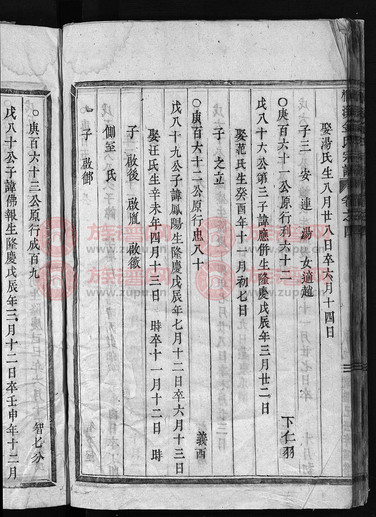 娶湯氏生八月廿八日卒六月十四日
子三 安 連 湯 女適趙
○庚百六十一公原行利六十二 下仁羽
戊八十六公第三子諱廬併生隆慶戊辰年三月廿二日
娶范氏生癸酉年十一月初七日
子 之立
○庚百六十二公原行忠八十 義酉
戊八十九公子諱鳳陽生隆慶戊辰年七月十二日卒六月十三日
娶汪氏生辛未年四月十三日 時卒十一月十二日 時
子 啟後 啟胤 啟徽
側室 氏
子 啟鄒
○庚百六十三公原行成百九 智七分
戊八十公子諱佛報生隆慶戊辰年三月十二日卒壬申年十二月